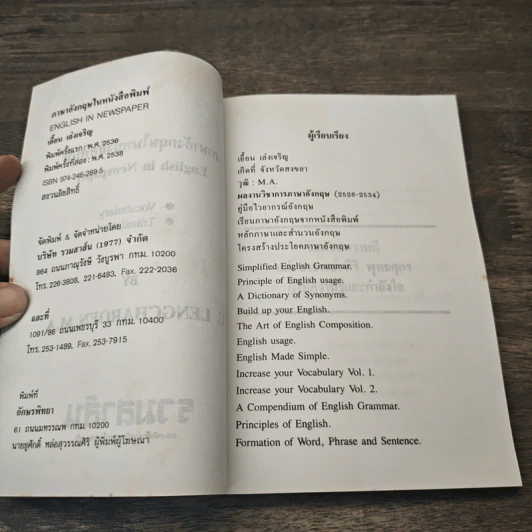 ภาษาอังกฤษในหนังสือพิมพ์
ENGLISH IN NEWSPAPER
เลื้อน เล่งเจริญ
พิมพ์ครั้งแรก: พ.ศ. 2536
พิมพ์ครั้งที่สอง: พ.ศ. 2538
ISBN 974-246-289-5
สงวนลิขสิทธิ์
จัดพิมพ์ & จัดจำหน่ายโดย
บริษัท รวมสาส์น (1977) จำกัด
864 ถนนภาณุรังษี วังบูรพา กทม. 10200
โทร. 226-3808, 221-6483, Fax. 222-2036
และที่
1091/86 ถนนเพชรบุรี 33 กทม. 10400
โทร. 253-1488, Fax. 253-7915
พิมพ์ที่
อักษรพิทยา
61 ถนนมหรรณพ กทม. 10200
นายชูศักดิ์ หล่อสุวรรณศิริ ผู้พิมพ์ผู้โฆษณา
ผู้เรียบเรียง
เลื้อน เล่งเจริญ
เกิดที่ จังหวัดสงขลา
วุฒิ : M.A.
ผลงานวิชาการภาษาอังกฤษ (2520-2534)
คู่มือไวยากรณ์อังกฤษ
เรียนภาษาอังกฤษจากหนังสือพิมพ์
หลักภาษาและสำนวนอังกฤษ
โครงสร้างประโยคภาษาอังกฤษ
Simplified English Grammar.
Principle of English usage.
A Dictionary of Synonyms.
Build up your English.
The Art of English Composition.
English usage.
English Made Simple.
Increase your Vocabulary Vol. 1.
Increase your Vocabulary Vol. 2.
A Compendium of English Grammar.
Principles of English.
Formation of Word, Phrase and Sentence.